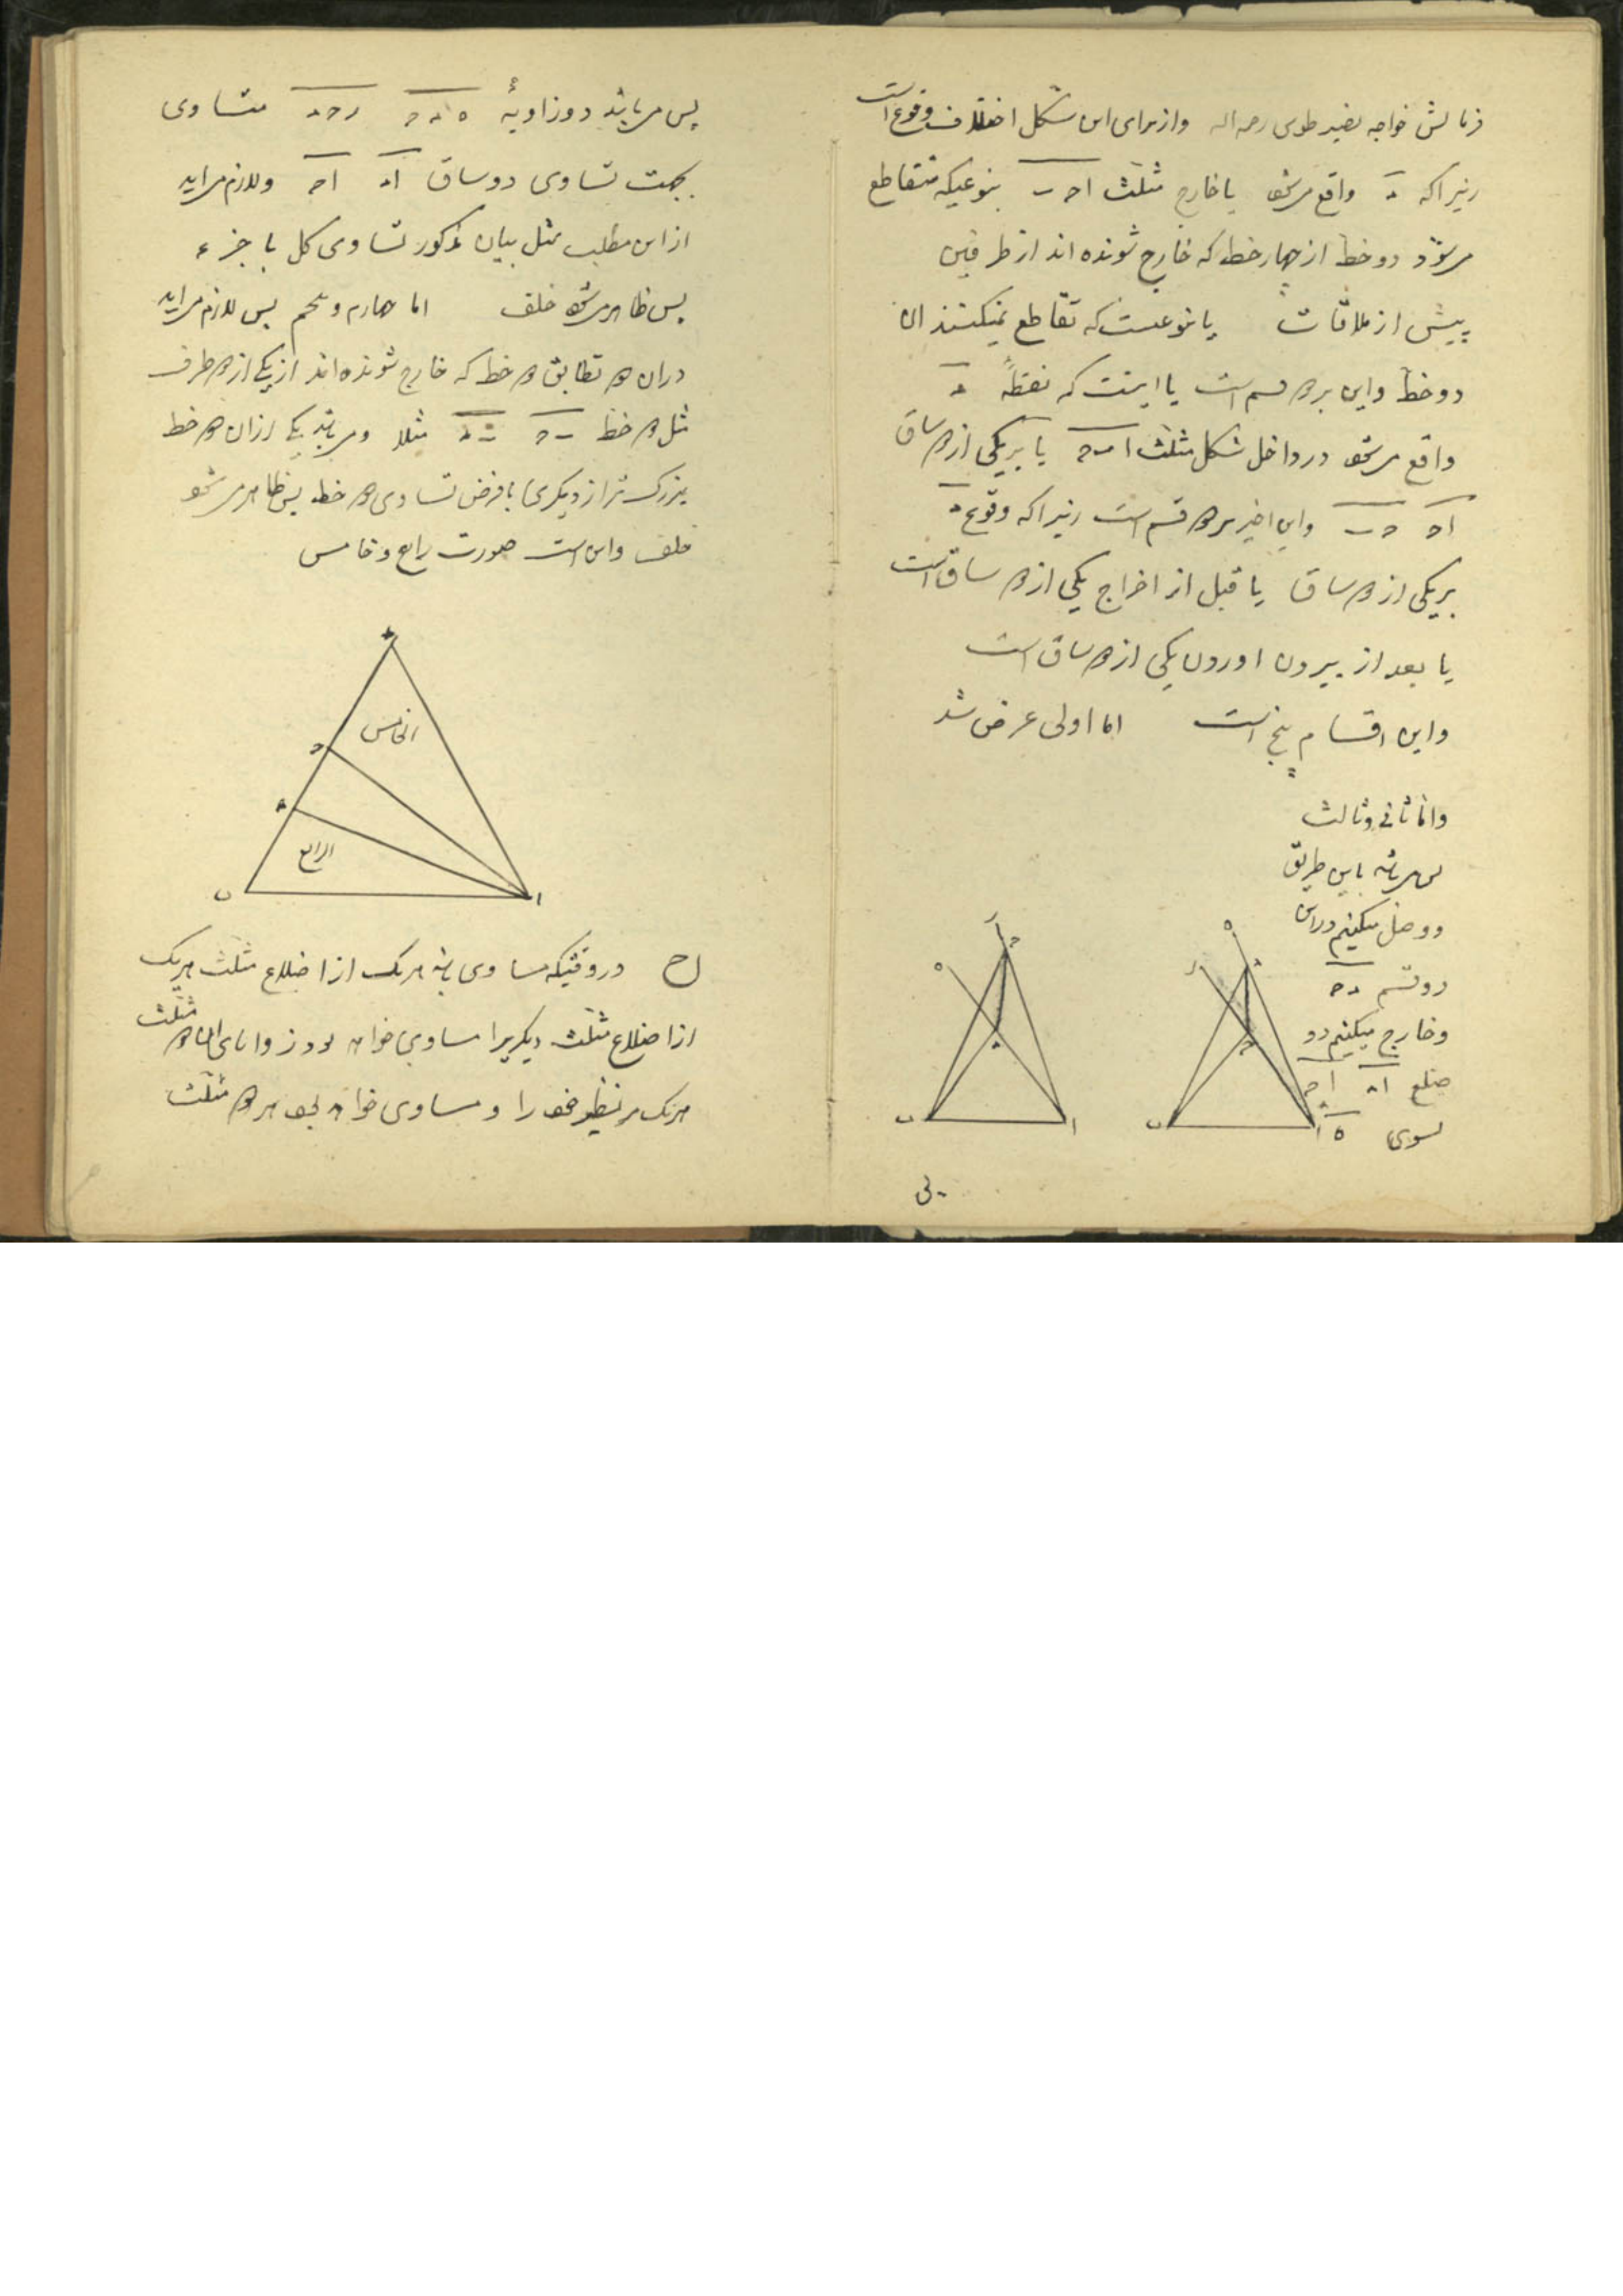 فرمایش خواجه نصیر طوسی رحمه الله وازبرای این شکل اختلاف وقوع است
زیراکه د واقع میشود یا خارج مثلث احب بنوعیکه متقاطع
میشود دوخط ازچهار خط که خارج شونده اند از طرفین
پیش از ملاقات یا نوعیست که تقاطع نمیکنند ان
دوخط واین بردو قسم است یا اینست که نقطهٔ د
واقع میشود درداخل شکل مثلث ابح یا بریکی ازدو ساق
اح حب واین اخیر بردو قسم است زیراکه وقوع د
بریکی ازدو ساق یا قبل از اخراج یکی ازدو ساق است
یا بعد از بیرون اوردن یکی ازدو ساق است
واین اقسام پنج است اما اولی عرض شد
واما ثانی وثالث
باین طریق
ووصل میکنیم دراین
دوقسم دح
وخارج میکنیم دو
ضلع اد اح
بسوی ه
ر
ح
ه
د
ب
ا
ه
د
ر
ح
ب
ا
پس میباشد دوزاویهٔ ه د ح رحد متساوی
بجهت تساوی دوساق اد اح ولازم میاید
ازاین مطلب مثل بیان مذکور تساوی کل با جزء
پس ظاهر میشود خلف اما چهارم وپنجم پس لازم میاید
دران دو تطابق دو خط که خارج شونده اند ازیکی ازدو طرف
مثل دو خط بح بد مثلا ومیباشد یکی ازان دو خط
بزرک تر از دیگری با فرض تساوی دو خط پس ظاهر میشود
خلف واین است صورت رابع وخامس
الخامس
ح
د
الرابع
ب
ا
ح دروقتیکه مساوی باشد هریک ازاضلاع مثلث هریک
ازاضلاع مثلث دیگریرا مساوی خواهد بود زوایای دو مثلث
هریک مر نظیر خود را ومساوی خواهد بود هردو مثلث